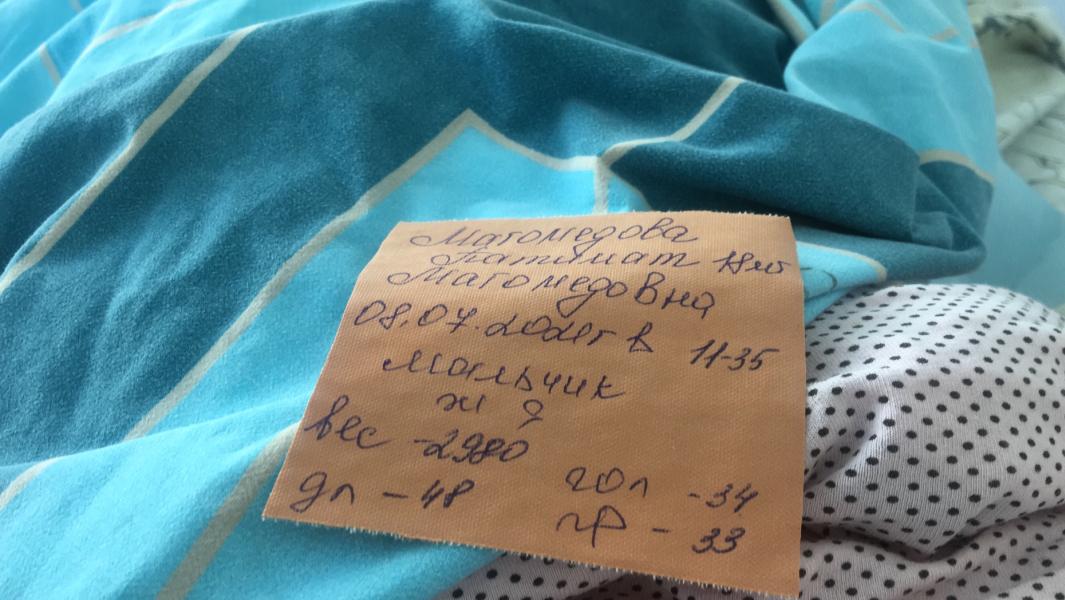 Магомедова
Патимат 18 лет
Магомедовна
08.07.2021г в 11-35
мальчик
вес -2980
дл - 48 гол - 34
гр - 33